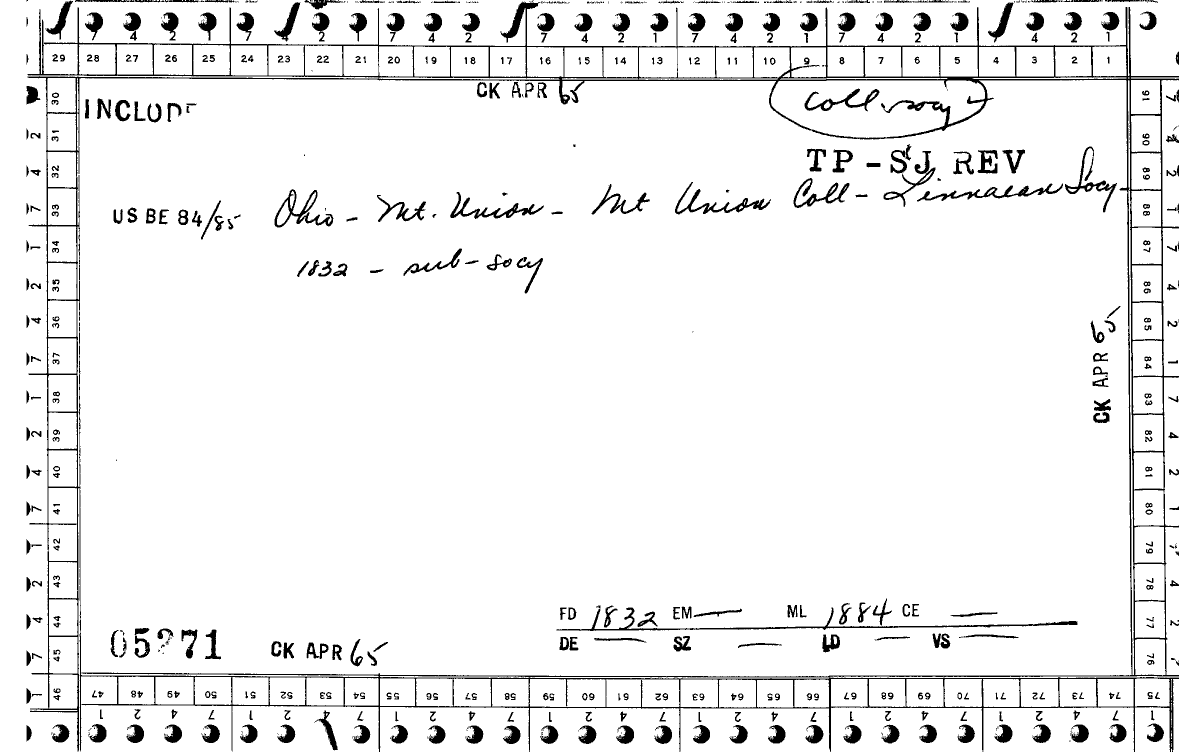 7 4 2 1 7 4 2 1 7 4 2 1 7 4 2 1 7 4 2 1 7 4 2 1 7 4 2 1
29 28 27 26 25 24 23 22 21 20 19 18 17 16 15 14 13 12 11 10 9 8 7 6 5 4 3 2 1
CK APR 65
INCLUDE
Coll. socy
TP - SJ REV
US BE 84/85 Ohio - Mt. Union - Mt Union Coll - Linnaean Socy -
1832 - sub-socy
CK APR 65
FD 1832 EM — ML 1884 CE —
DE — SZ — LD — VS —
CK APR 65
30 31 32 33 34 35 36 37 38 39 40 41 42 43 44 45 46
91 90 89 88 87 86 85 84 83 82 81 80 79 78 77 76
47 48 49 50 51 52 53 54 55 56 57 58 59 60 61 62 63 64 65 66 67 68 69 70 71 72 73 74 75
1 2 4 7 1 2 4 7 1 2 4 7 1 2 4 7 1 2 4 7 1 2 4 7 1 2 4 7 1